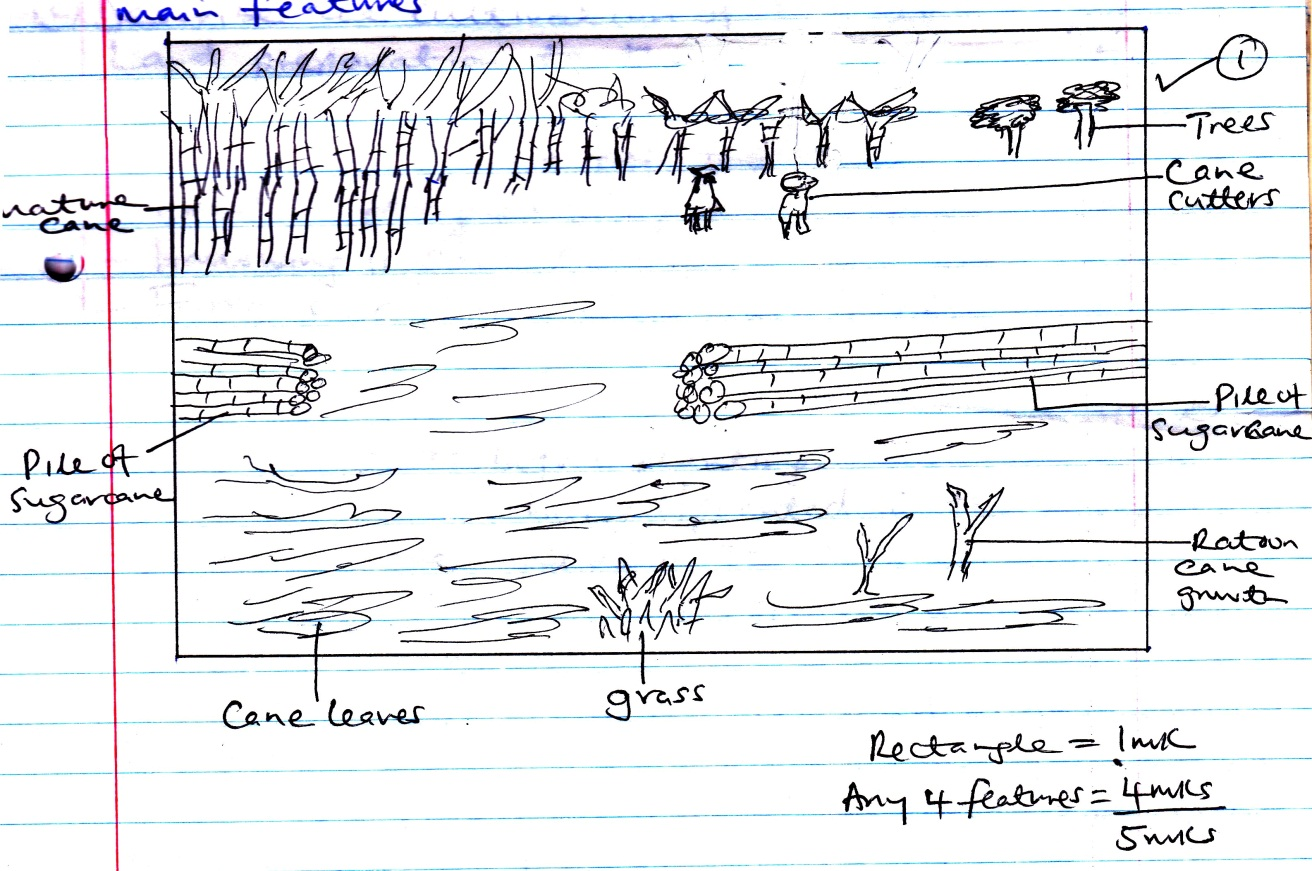 main features
1
Trees
Cane
cutters
mature
cane
Pile of
sugarcane
Pile of
sugarcane
Ratoon
cane
growth
Cane leaves
grass
Rectangle = 1mk
Any 4 features = 4mks
5mks